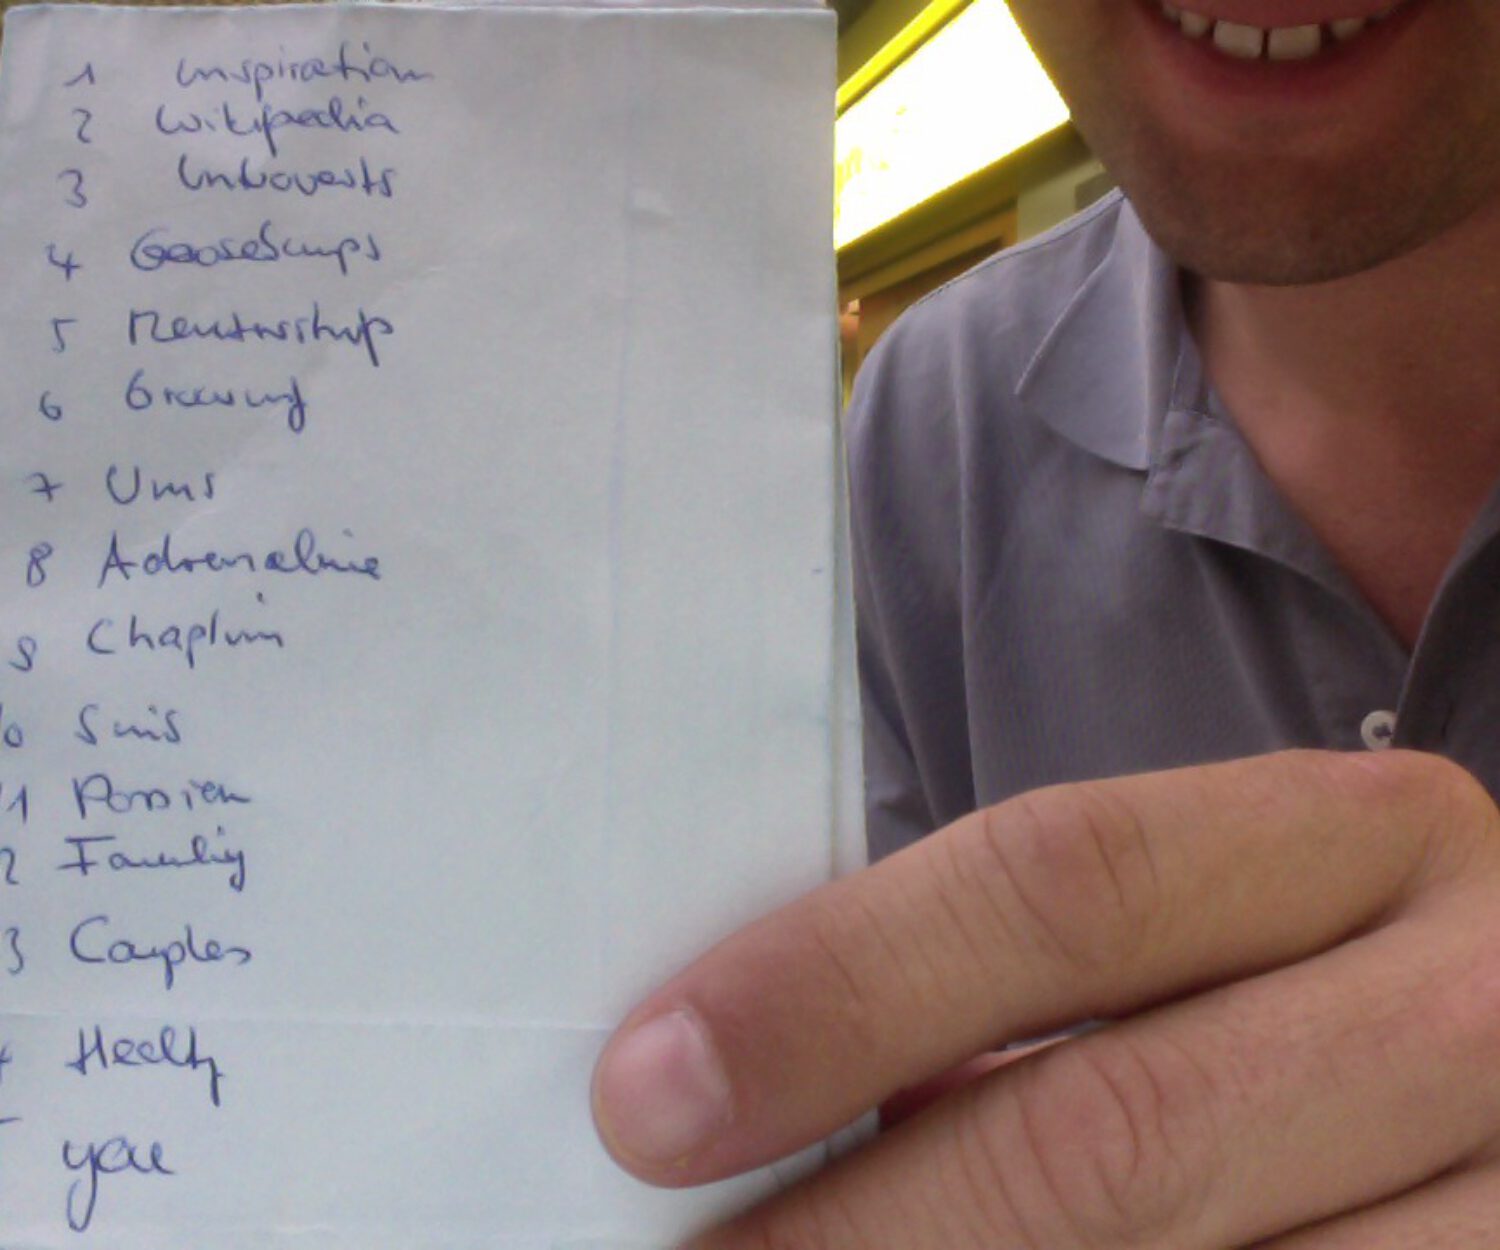 1 Inspiration
2 Wikipedia
3 Introverts
4 Goosebumps
5 Mentorship
6 Growing
7 Ums
8 Adrenaline
9 Chaplin
10 Sins
11 Passion
2 Family
3 Couples
4 Health
you